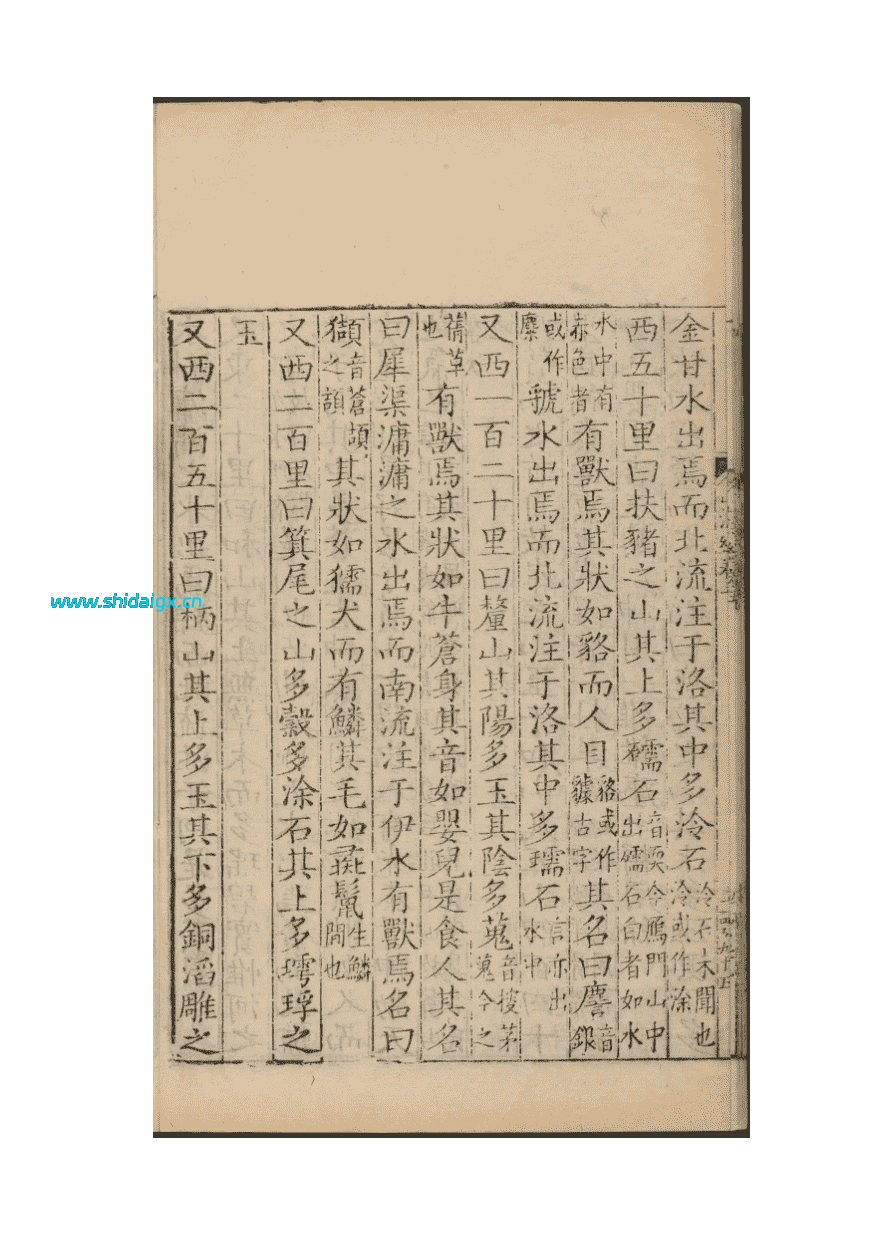 金甘水出焉而北流注于洛其中多泠石泠石未聞也泠或作涂
西五十里曰扶豬之山其上多礝石音耎今鴈門山中出礝石白者如水
水中有赤色者有獸焉其狀如貉而人目貉或作㹮古字其名曰䴦音銀
或作麋虢水出焉而北流注于洛其中多瓀石言亦出水中
又西一百二十里曰釐山其陽多玉其陰多蒐音搜茅蒐今之
蒨草也有獸焉其狀如牛蒼身其音如嬰兒是食人其名
曰犀渠滽滽之水出焉而南流注于伊水有獸焉名曰
𤢺音蒼頡之頡其狀如獳犬而有鱗其毛如彘鬣生鱗間也
又西二百里曰箕尾之山多穀多涂石其上多㻬琈之
玉
又西二百五十里曰柄山其上多玉其下多銅滔雕之
www.shidaigx.cn